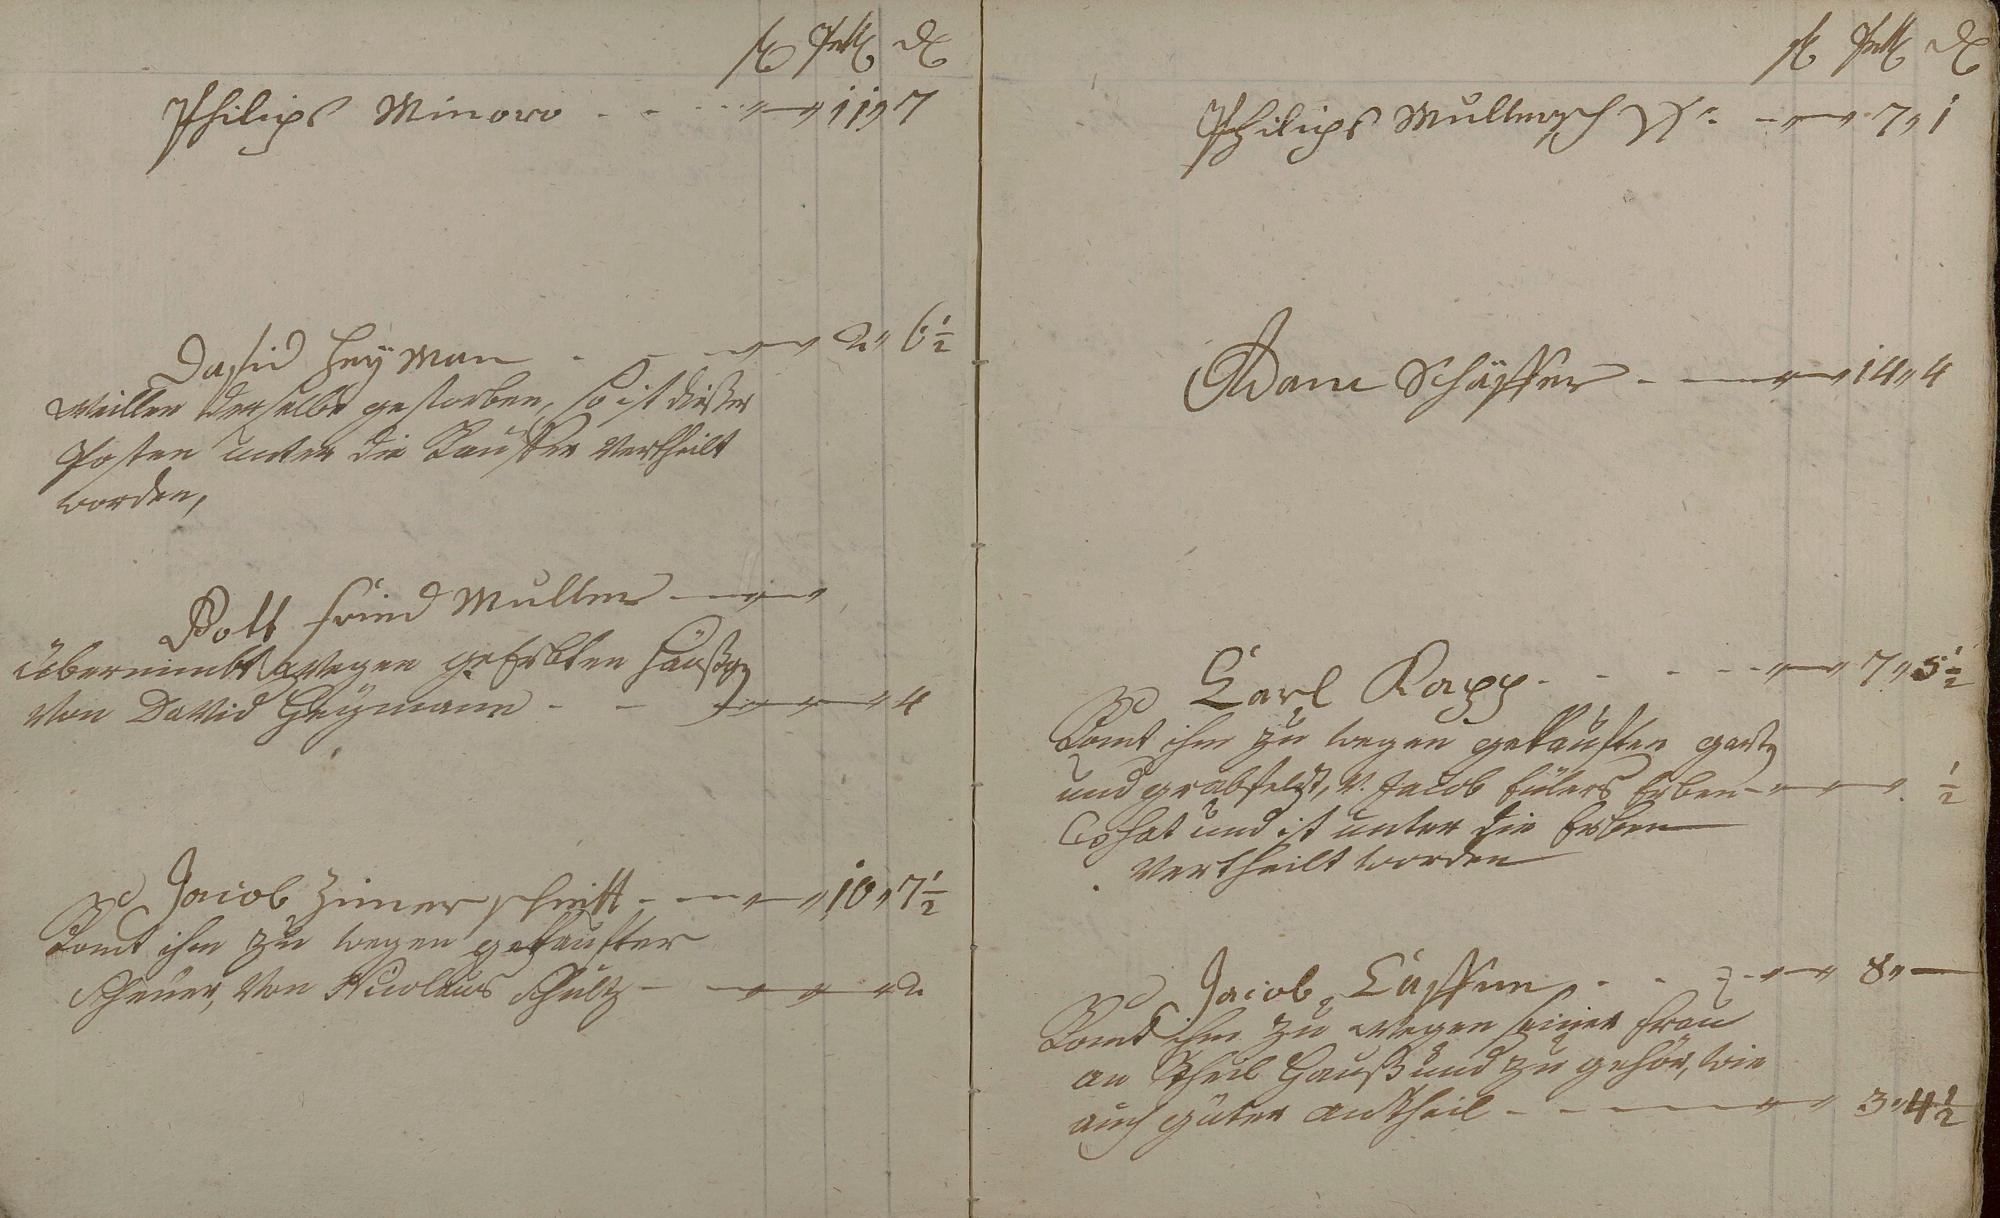 fl btz d
Philips Minoro - - - - - " — " 11 " 7
Dafid Heÿman - - - " " 2 " 6 1/2
Weillen derselbe gestorben, so ist dießer
Posten unter die Kauffer Vertheilt
worden,
Gott fried Muller — " — "
Übernimbt wegen geErbten Häußgen
Von David Heÿmann - - — " — " — " 4
Jacob Zimerschitt - - — " — " 10 " 7 1/2
Komt ihm zu wegen gekaufter
Scheuer, Von Nicolaus Schultz - — " — " — " 2
fl btz d
Philips Mullers - — " — " 7 " 1
Adam Schäffer - — " — " 14 " 4
Carl Rapp - - - - - " — " 7 " 5 1/2
Komt ihm zu wegen gekauften
und, V. Jacob Eülers Erben - " — " — " 1/2
hat und ist unter die Erben
Vertheilt worden
Jacob - - - " — " 8 " —
Komt ihm zu wegen seiner Frau
an Theil Hauß und zu gehör, wie
auch güter antheil - - — — " — " 3 " 4 1/2